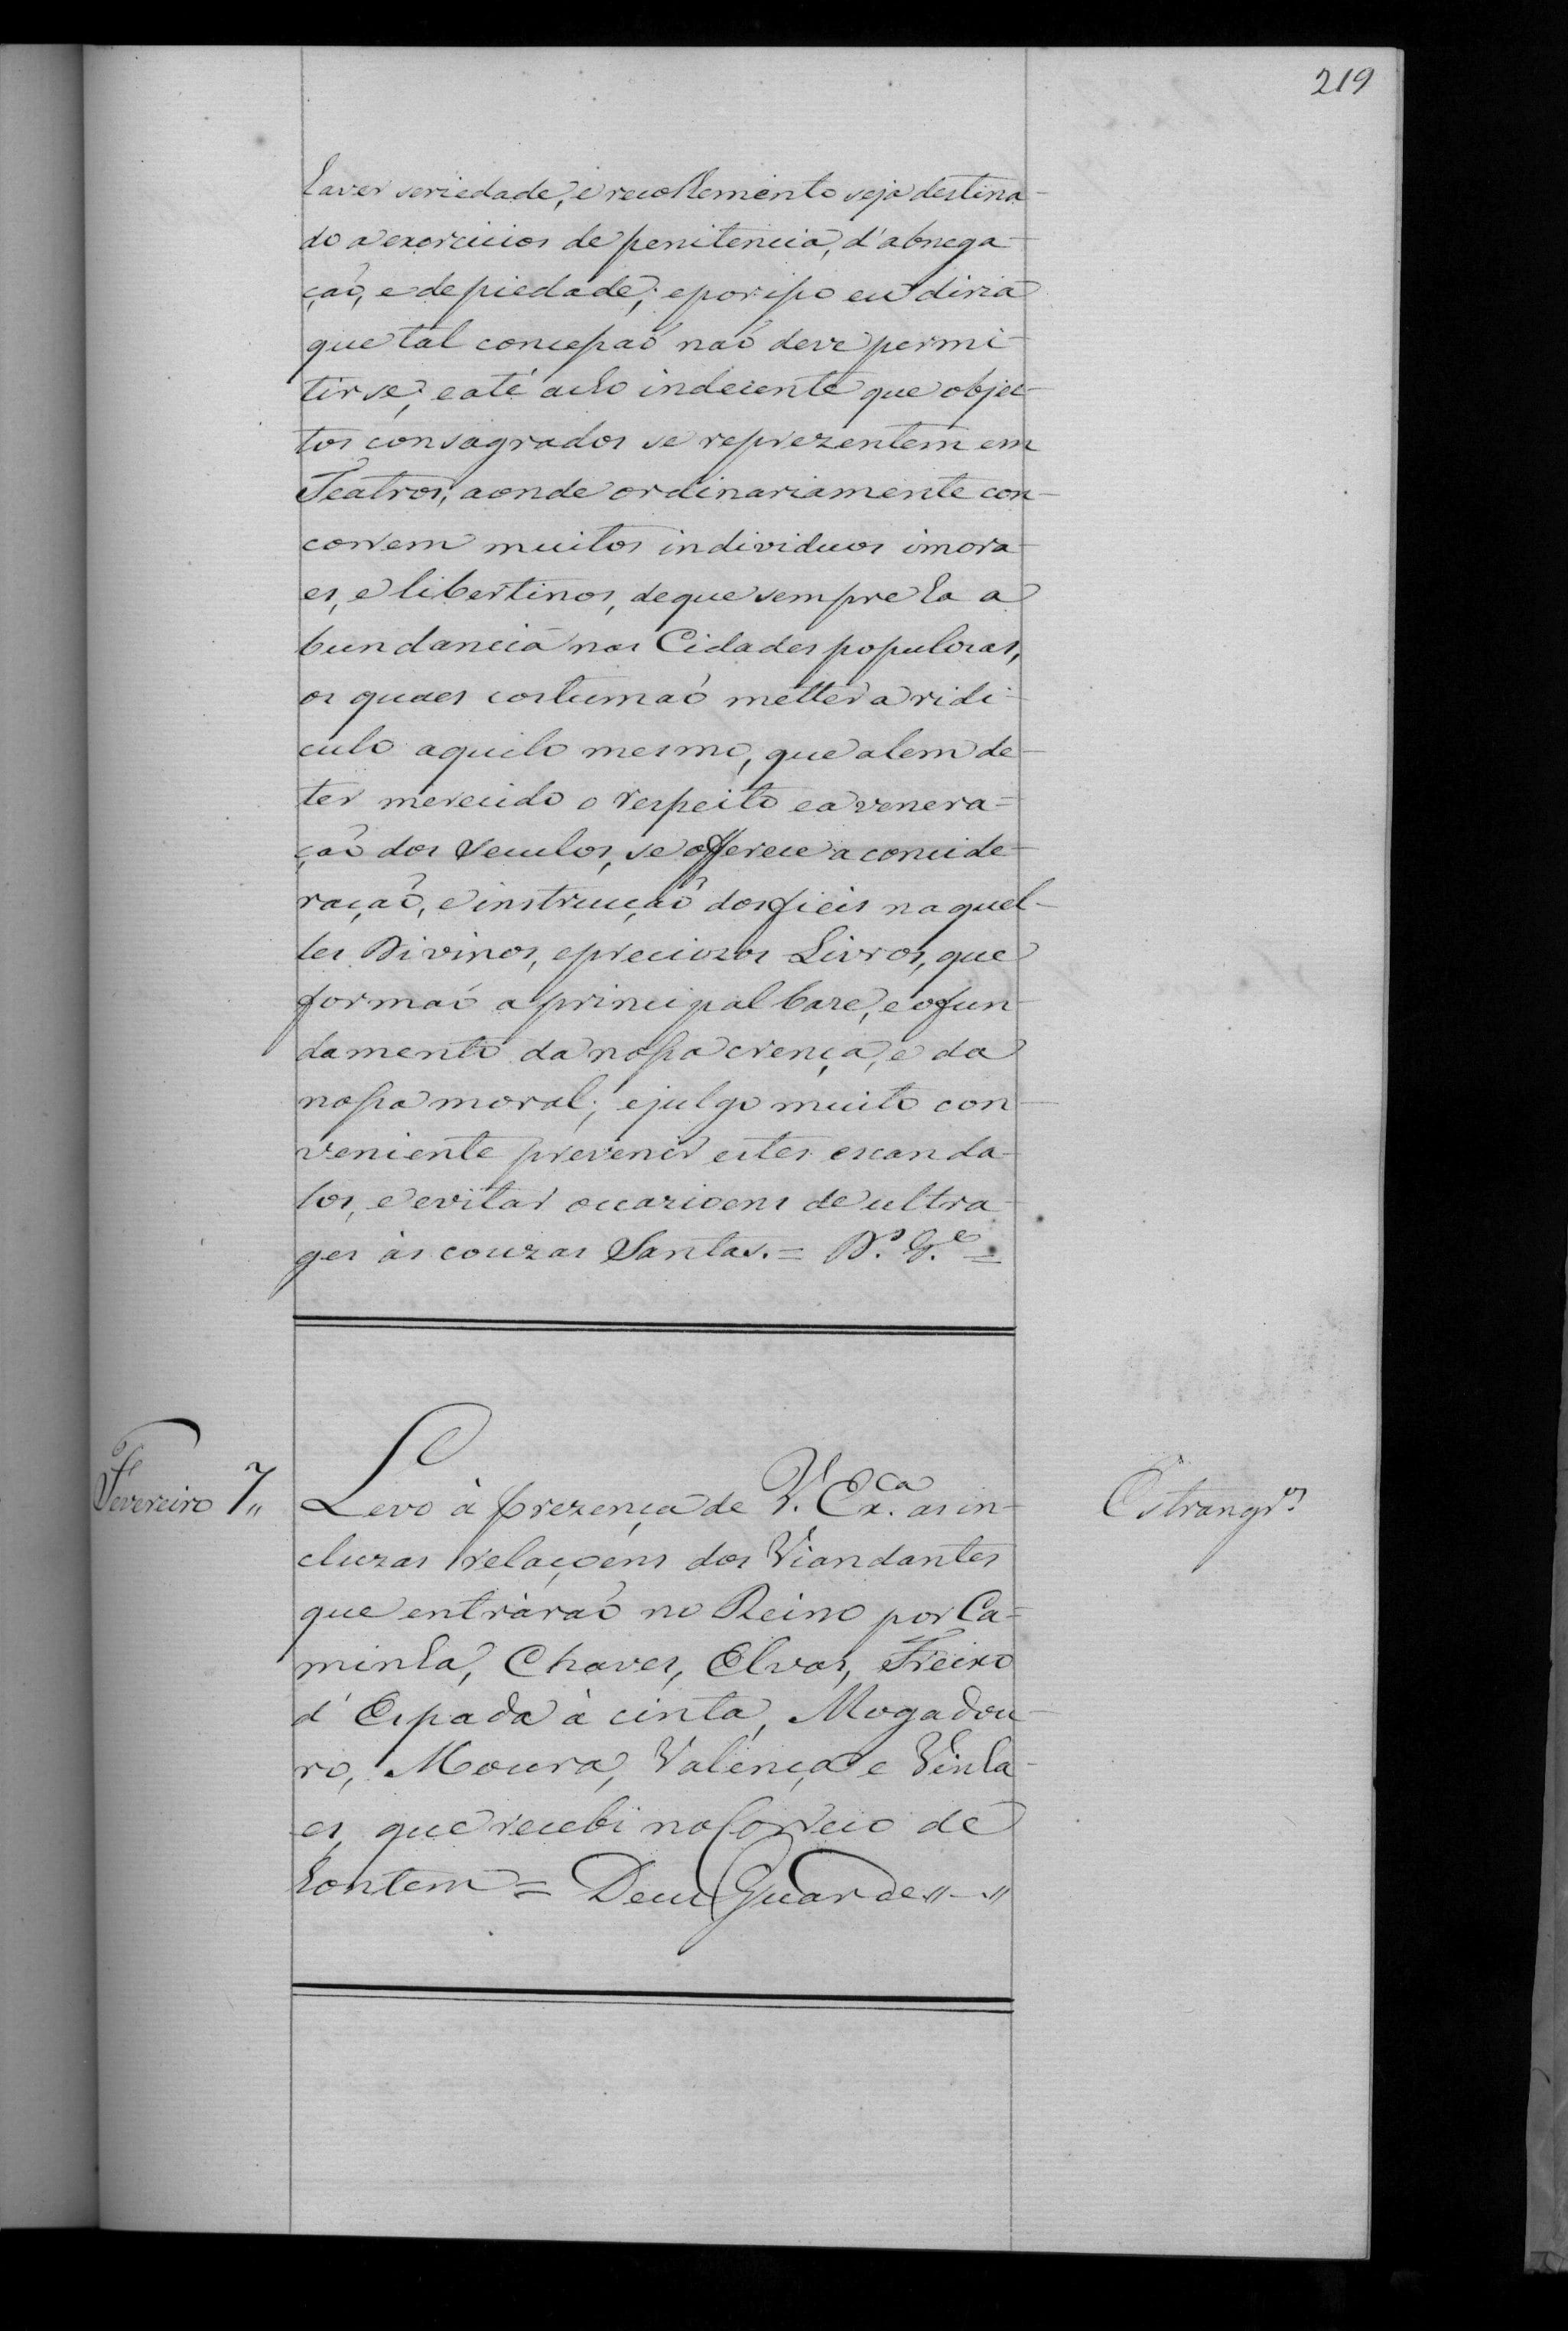 219
haver seriedade, e recolhemento seja destina-
do a exercicios de penitencia, d'abnega-
çaõ, e de piedade; e por isso eu diria
que tal concessaõ naõ deve permi-
tirse; e até acho indecente que objec-
tos consagrados se reprezentem em
Teatros; aonde ordinariamente con-
correm muitos individuos imora-
es, e libertinos, de que sempre ha a
bundancia nas Cidades populosas,
os quaes costumaõ metter a ridi-
culo aquilo mesmo, que alem de
ter merecido o respeito e a venera=
çaõ dos Seculos, se offerece a concide-
raçaõ, e instrucçaõ dos fieis naquel-
les Divinos, e preciozos Livros, que
formaõ a principal baze, e o fun-
damento da nossa crença, e da
nossa moral; e julgo muito con-
veniente prevenir estes escanda-
los, e evitar occazioens de ultra-
ges às couzas Santas. = D.s G.e =
Fevereiro 7"
Levo à prezença de V. Ex.ca as in-
cluzas relaçoens dos Viandantes
que entràraõ no Reino por Ca=
minha, Chaves, Elvas, Freixo
d'Espada à cinta, Mogadou-
ro, Moura, Valença e Vinha-
es, que recebi no Correio de
hontem = Deus Guarde "-"
Estrangr.os